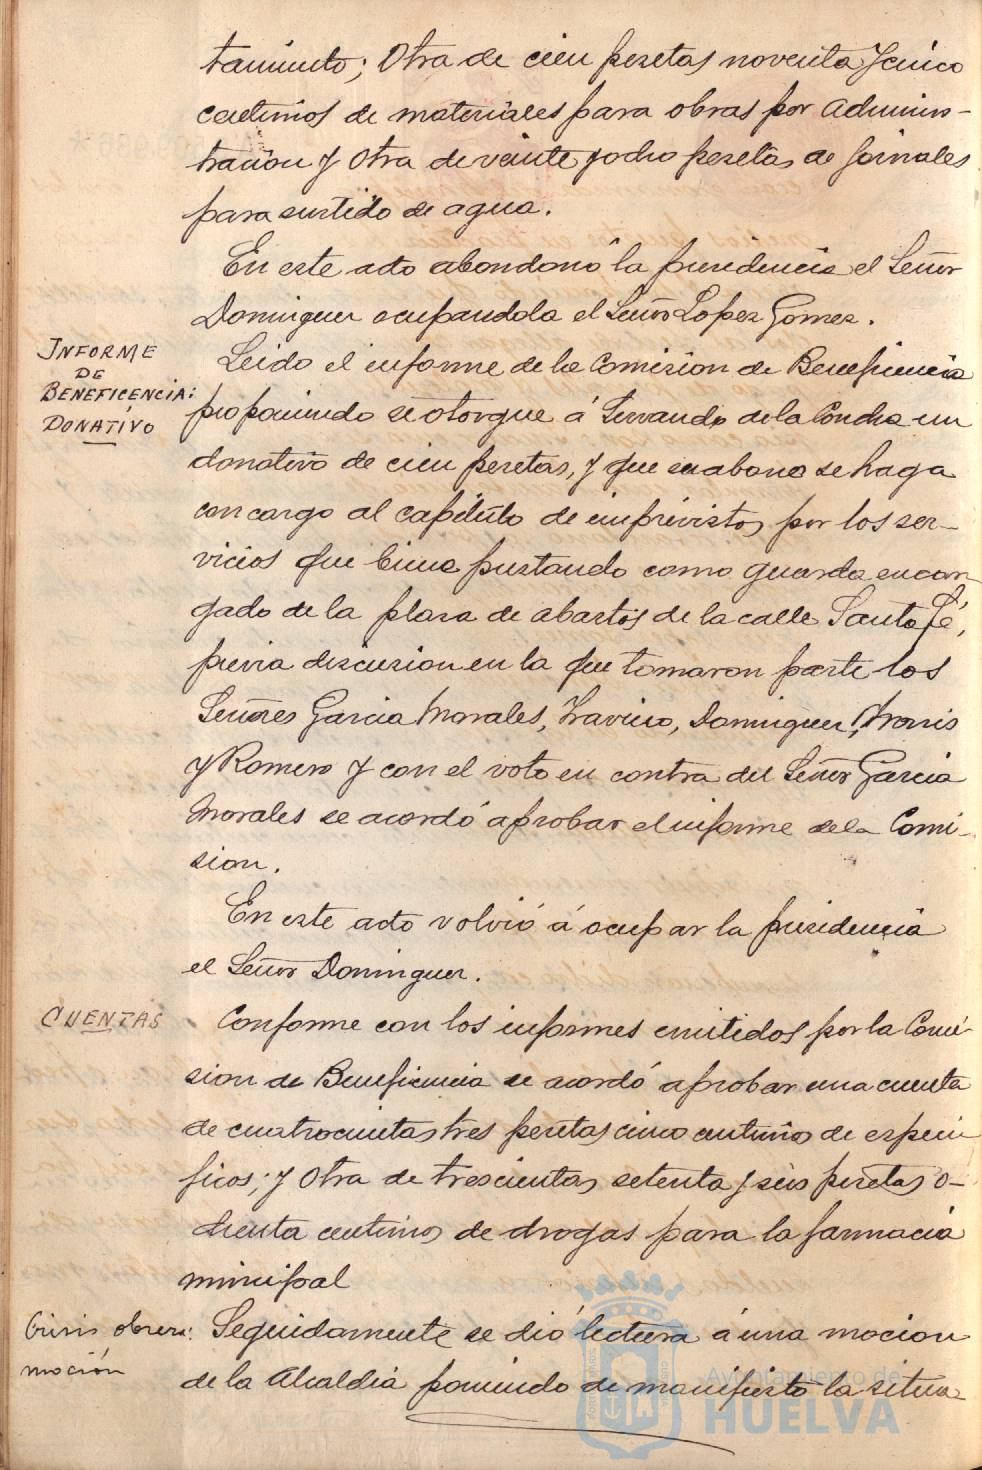 tamiento; Otra de cien pesetas noventa y cinco
centimos de materiales para obras por Adminis-
tracion y Otra de veinte y ocho pesetas de jornales
para surtido de agua.
En este acto abandonó la presidencia el Señor
Dominguez ocupandola el Señor Lopez Gomez.
INFORME
DE
BENEFICENCIA:
DONATÍVO
Leido el informe de la Comision de Beneficencia
proponiendo se otorgue á Servando de la Concha un
donativo de cien pesetas, y que su abono se haga
con cargo al capitulo de imprevistos por los ser-
vicios que biene prestando como guarda encar
gado de la plaza de abastos de la calle Santa Fé,
previa discusion en la que tomaron parte los
Señores Garcia Morales, Travieso, Dominguez, Morris
y Romero y con el voto en contra del Señor Garcia
Morales se acordó aprobar el informe de la Comi-
sion.
En este acto volvió á ocupar la presidencia
el Señor Dominguez.
CUENTAS
Conforme con los informes emitidos por la Comi-
sion de Beneficencia se acordó aprobar una cuenta
de cuatrocientas tres pesetas cinco centimos de especi
ficos; y Otra de trescientas setenta y seis pesetas o-
chenta centimos de drogas para la farmacia
minicipal
Crisis obrera:
moción
Seguidamente se dió lectura á una mocion
de la Alcaldia poniendo de manifiesto la situa-
Ayuntamiento de
HUELVA